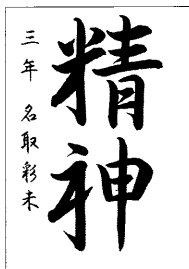 精神
三年 名取彩未